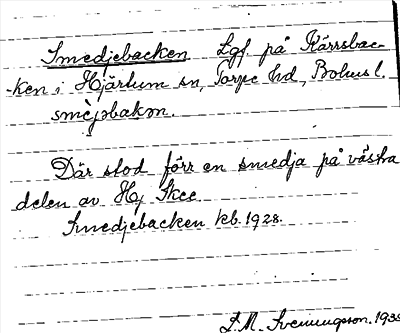 Smedjebacken Lgf. på Kärrsbac-
-ken i Hjärtum sn, Torpe hd, Bohus l.
smèjəbakən.
Där stod förr en smedja på västra
delen av Hj Skee
Smedjebacken kb. 1928.
S. M. Svenningson. 193